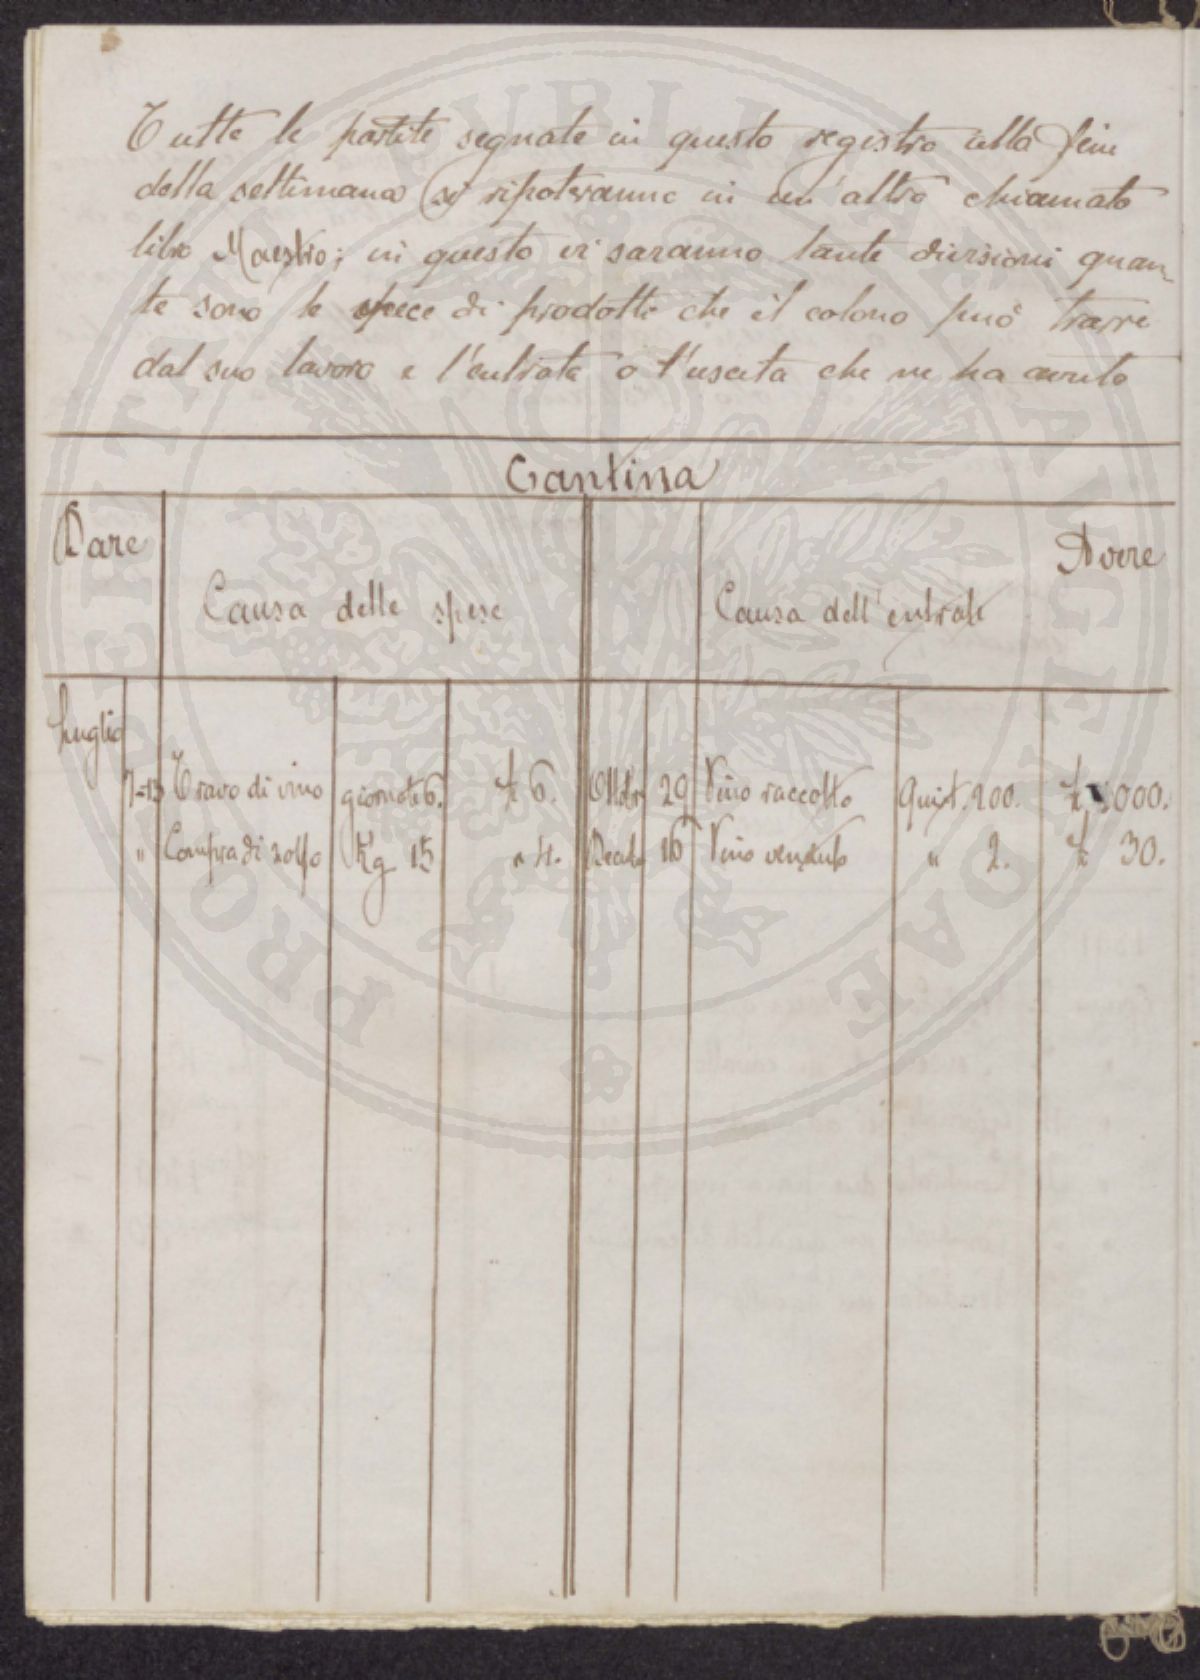 Tutte le partite segnate in questo registro alla fine
della settimana si riporteranno in un'altro chiamato
libro Maestro; in questo vi saranno tante divisioni quan-
te sono le spece di prodotti che il colono può trarre
dal suo lavoro e l'entrata o l'uscita che ne ha avuto
Cantina
Dare
Avere
Causa delle spese
Causa dell'entrate
Luglio
7=13 Travo di vino giornate 6. £ 6. Ottobr 29 Vino raccolto Quint. 200. £ 000.
" Compra di zolfo Kg 15 " 4. Decebr 16 Vino venduto " 2. £ 30.